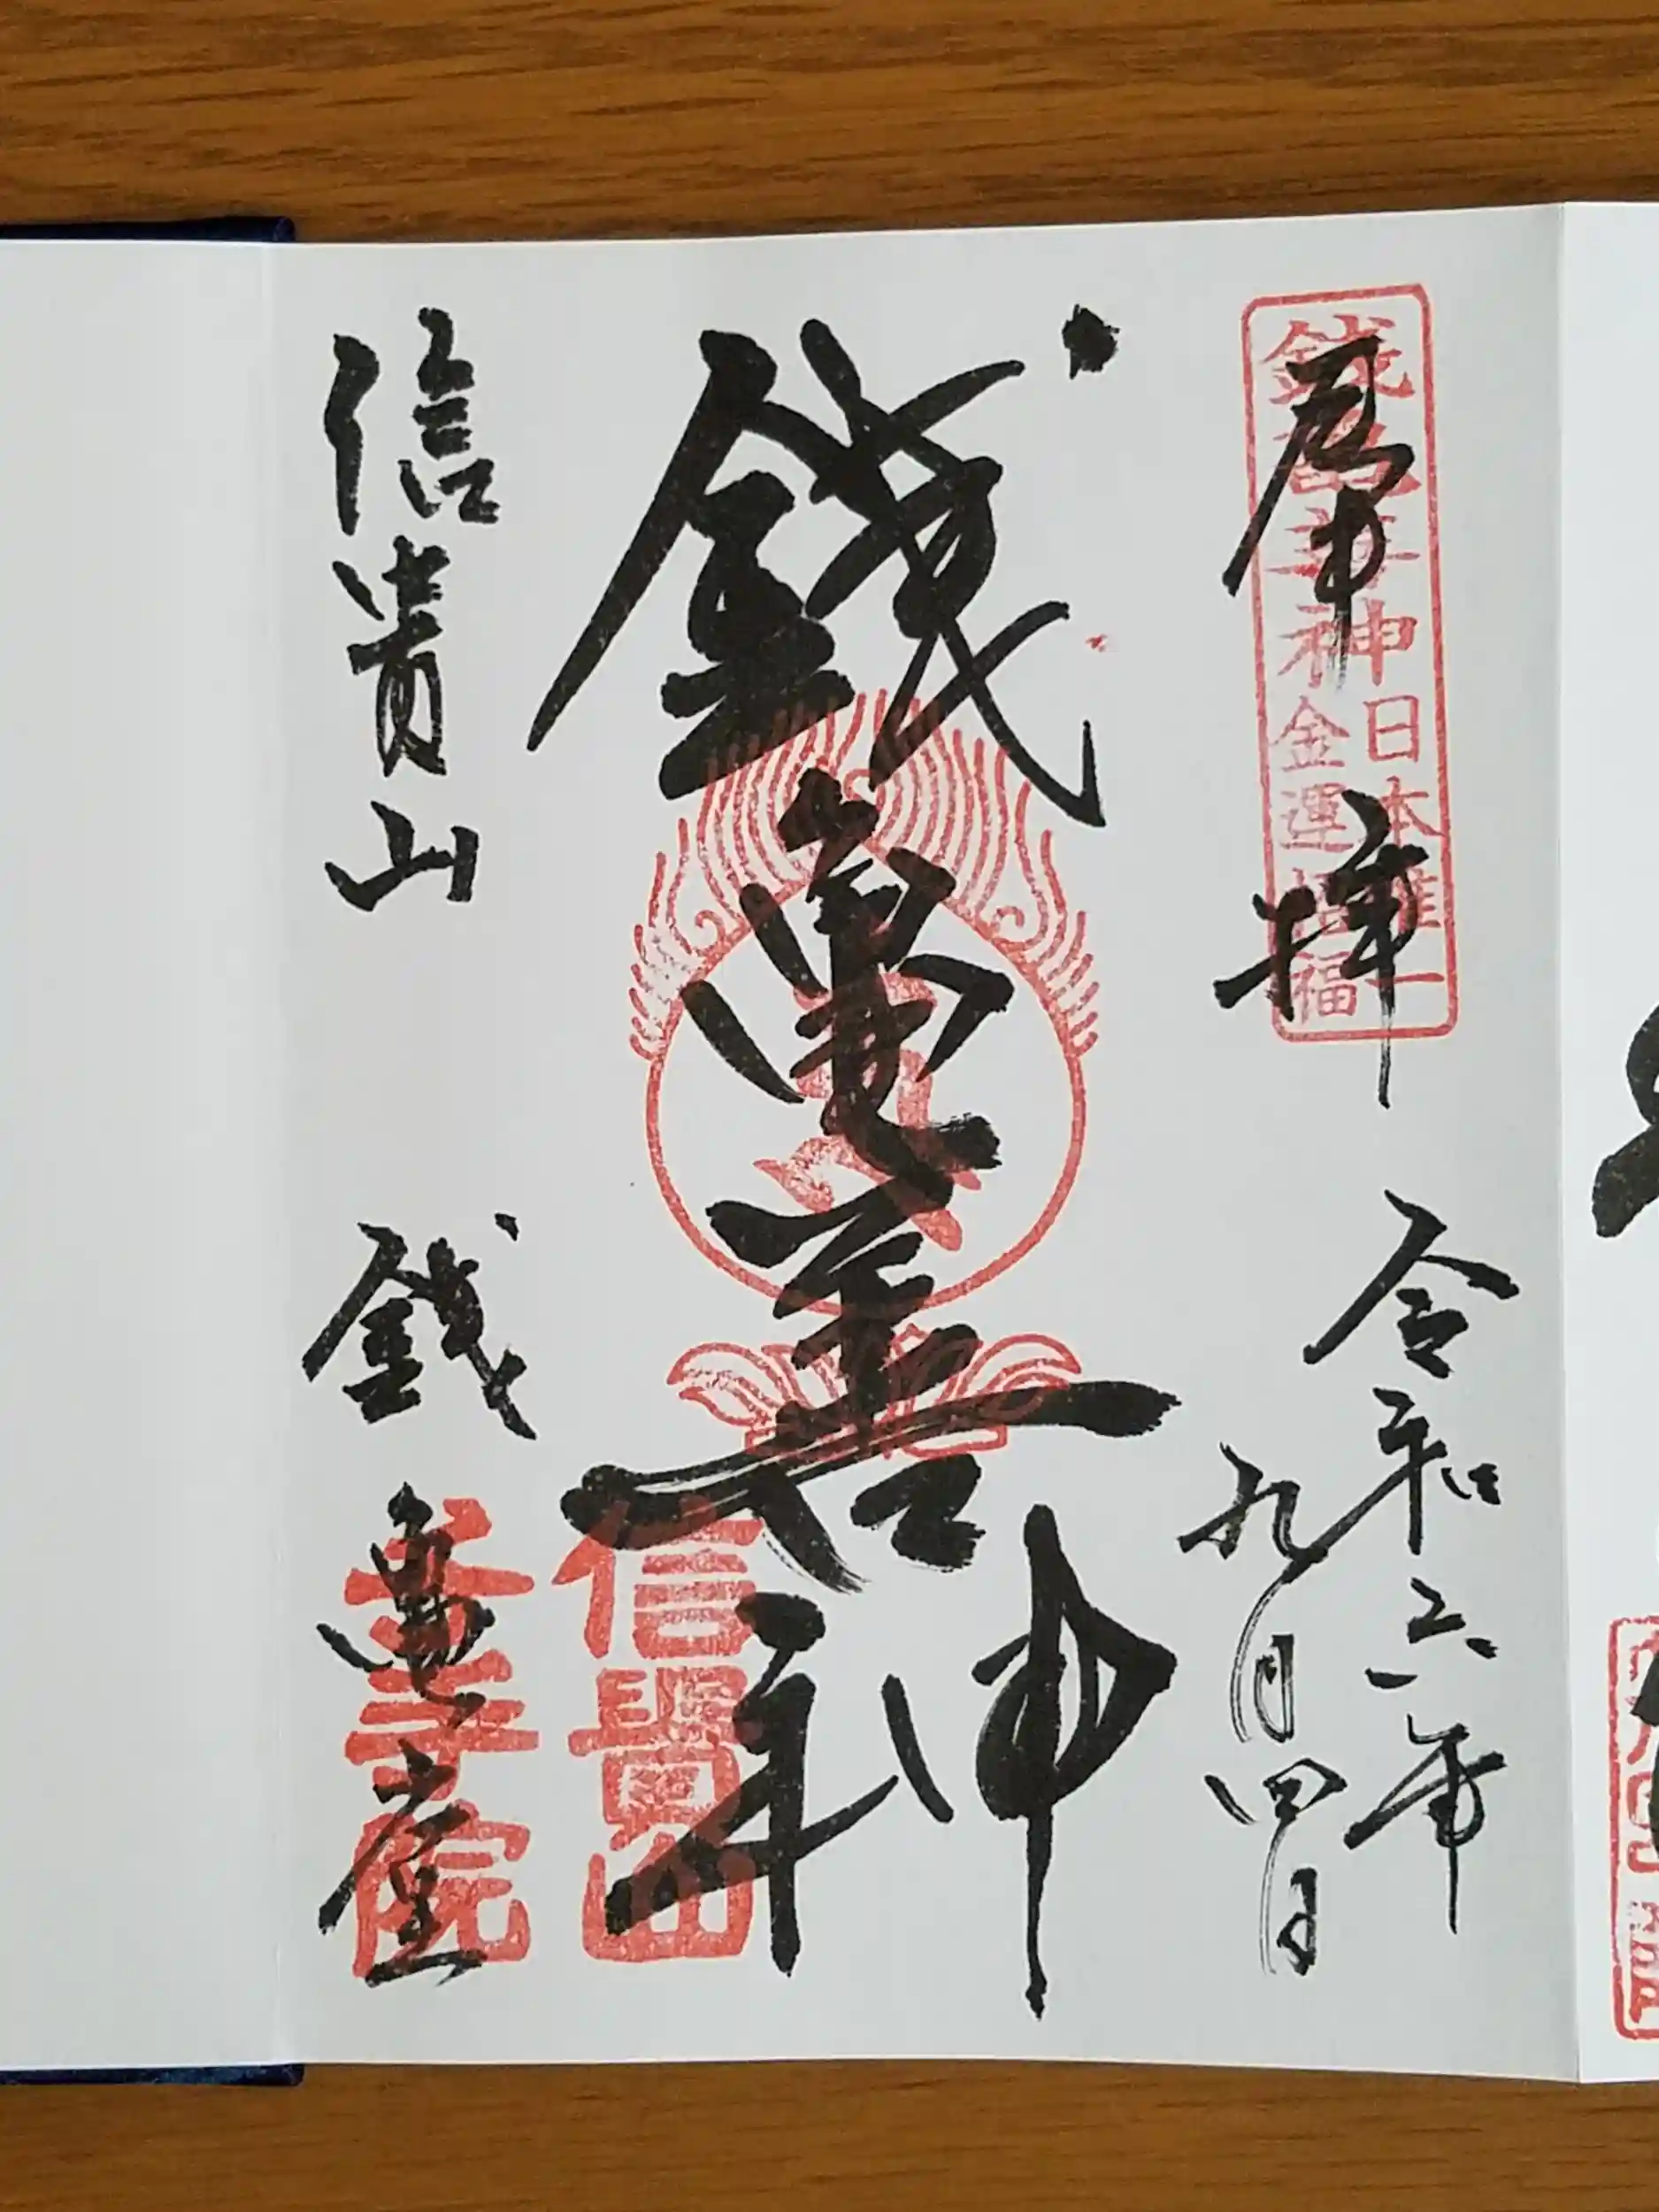 奉拝
令和六年
九月四日
銭亀善神
日本唯一
金運招福
銭亀善神
信貴山
千手院
信貴山
銭亀堂